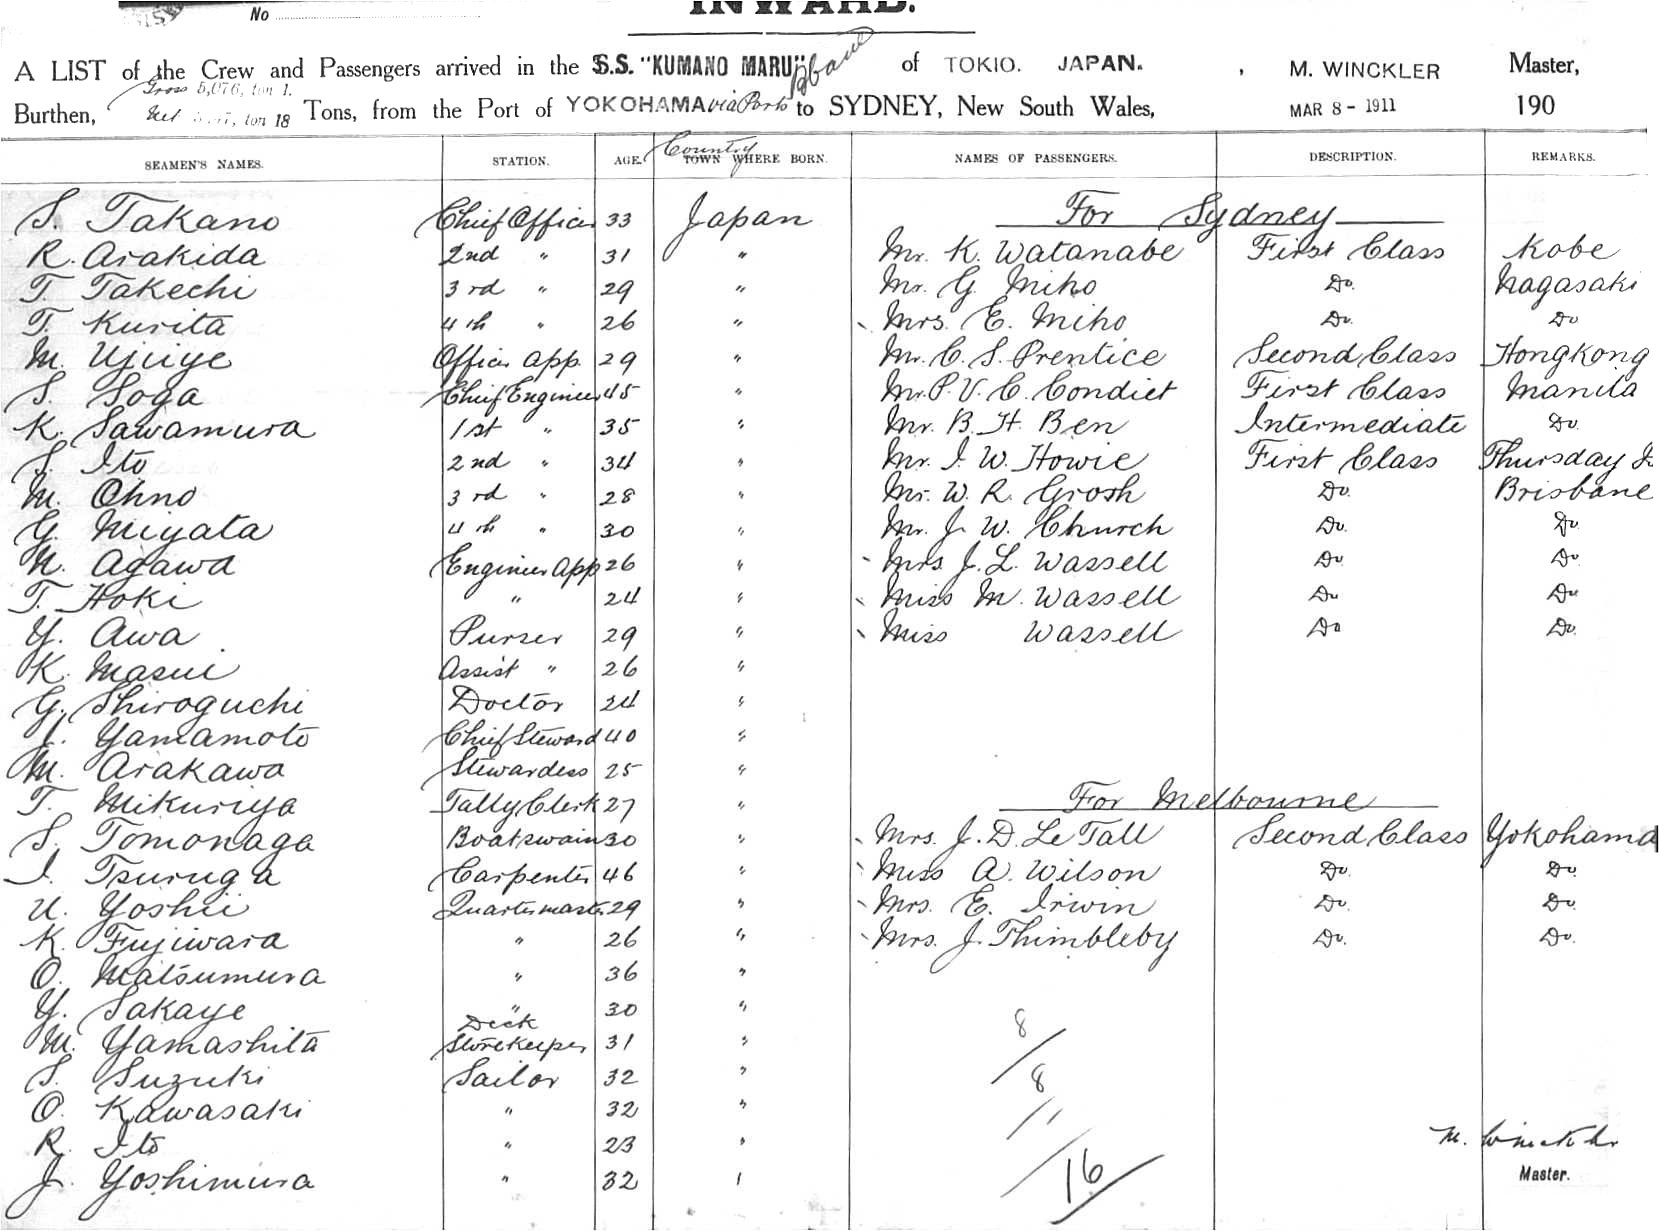 No
INWARD.
A LIST of the Crew and Passengers arrived in the S.S. "KUMANO MARU" of TOKIO. JAPAN. , M. WINCKLER Master,
Gross 5,076, ton 1.
Burthen, Tons, from the Port of YOKOHAMA via Ports to SYDNEY, New South Wales, MAR 8 - 1911 190
Net ton 18
Country
SEAMEN'S NAMES. STATION. AGE. TOWN WHERE BORN. NAMES OF PASSENGERS. DESCRIPTION. REMARKS.
S. Takano Chief Officer 33 Japan For Sydney
R. Arakida 2nd " 31 " Mr. K. Watanabe First Class Kobe
T. Takechi 3rd " 29 " Mr. G. Miho Do. Nagasaki
T. Kurita 4th " 26 " Mrs. E. Miho Do. Do
M. Ujiiye Officer app. 29 " Mr. C. S. Prentice Second Class Hongkong
S. Soga Chief Engineer 45 " Mr. P. V. C. Condict First Class Manila
K. Sawamura 1st " 35 " Mr. B. H. Ben Intermediate Do.
S. Ito 2nd " 34 " Mr. I. W. Howie First Class Thursday Is
M. Ohno 3rd " 28 " Mr. W. R. Grosh Do. Brisbane
G. Miyata 4th " 30 " Mr. J. W. Church Do. Do
N. Agawa Engineer App 26 " Mrs. J. L. Wassell Do Do
T. Hoki " 24 " Miss M. Wassell Do Do
Y. Awa Purser 29 " Miss Wassell Do Do.
K. Masui Assist " 26 "
G. Shiroguchi Doctor 24 "
I. Yamamoto Chief Steward 40 "
M. Arakawa Stewardess 25 "
T. Mikuriya Tally Clerk 27 " For Melbourne
S. Tomonaga Boatswain 30 " Mrs. J. D. Le Tall Second Class Yokohama
I. Tsuruga Carpenter 46 " Miss A. Wilson Do. Do.
U. Yoshii Quartermaster 29 " Mrs. E. Irwin Do. Do.
K. Fujiwara " 26 " Mrs. J. Thimbleby Do. Do.
O. Matsumura " 36 "
Y. Sakaye " 30 "
M. Yamashita Deck Storekeeper 31 "
S. Suzuki Sailor 32 "
O. Kawasaki " 32 "
R. Ito " 23 "
J. Yoshimura " 32 "
8
8
16
M. Winckler
Master.